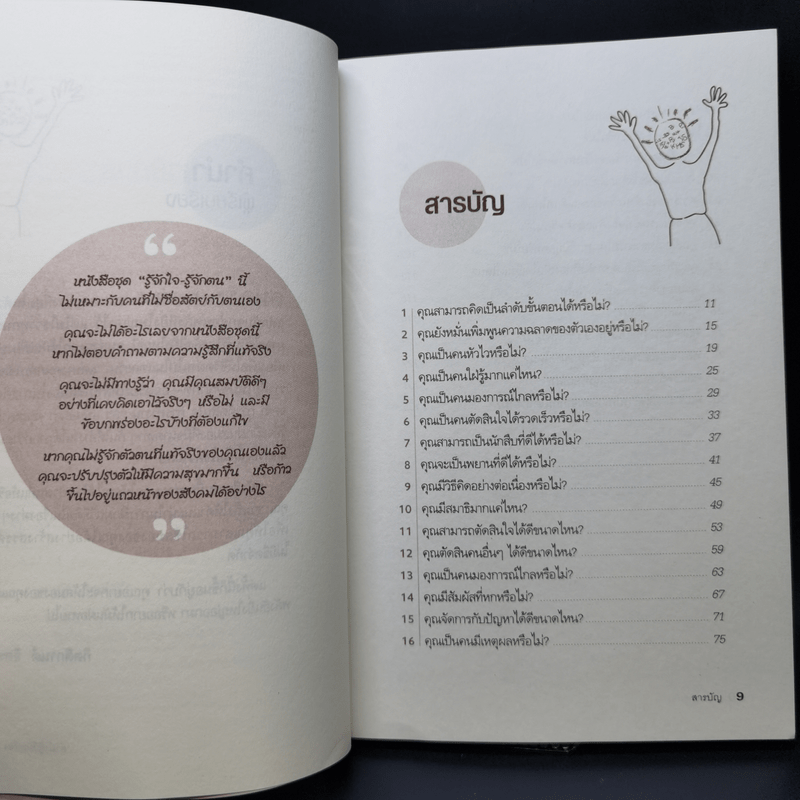 “
หนังสือชุด “รู้จักใจ-รู้จักตน” นี้
ไม่เหมาะกับคนที่ไม่ซื่อสัตย์กับตนเอง
คุณจะไม่ได้อะไรเลยจากหนังสือชุดนี้
หากไม่ตอบคำถามตามความรู้สึกที่แท้จริง
คุณจะไม่มีทางรู้ว่า คุณมีคุณสมบัติดีๆ
อย่างที่เคยคิดเอาไว้จริงๆ หรือไม่ และมี
ข้อบกพร่องอะไรบ้างที่ต้องแก้ไข
หากคุณไม่รู้จักตัวตนที่แท้จริงของคุณเองแล้ว
คุณจะปรับปรุงตัวให้มีความสุขมากขึ้น หรือก้าว
ขึ้นไปอยู่แถวหน้าของสังคมได้อย่างไร
”
สารบัญ
1 คุณสามารถคิดเป็นลำดับขั้นตอนได้หรือไม่? 11
2 คุณยังหมั่นเพิ่มพูนความฉลาดของตัวเองอยู่หรือไม่? 15
3 คุณเป็นคนหัวไวหรือไม่? 19
4 คุณเป็นคนใฝ่รู้มากแค่ไหน? 25
5 คุณเป็นคนมองการณ์ไกลหรือไม่? 29
6 คุณเป็นคนตัดสินใจได้รวดเร็วหรือไม่? 33
7 คุณสามารถเป็นนักสืบที่ดีได้หรือไม่? 37
8 คุณจะเป็นพยานที่ดีได้หรือไม่? 41
9 คุณมีวิธีคิดอย่างต่อเนื่องหรือไม่? 45
10 คุณมีสมาธิมากแค่ไหน? 49
11 คุณสามารถตัดสินใจได้ดีขนาดไหน? 53
12 คุณตัดสินคนอื่นๆ ได้ดีขนาดไหน? 59
13 คุณเป็นคนมองการณ์ไกลหรือไม่? 63
14 คุณมีสัมผัสที่หกหรือไม่? 67
15 คุณจัดการกับปัญหาได้ดีขนาดไหน? 71
16 คุณเป็นคนมีเหตุผลหรือไม่? 75
สารบัญ 9